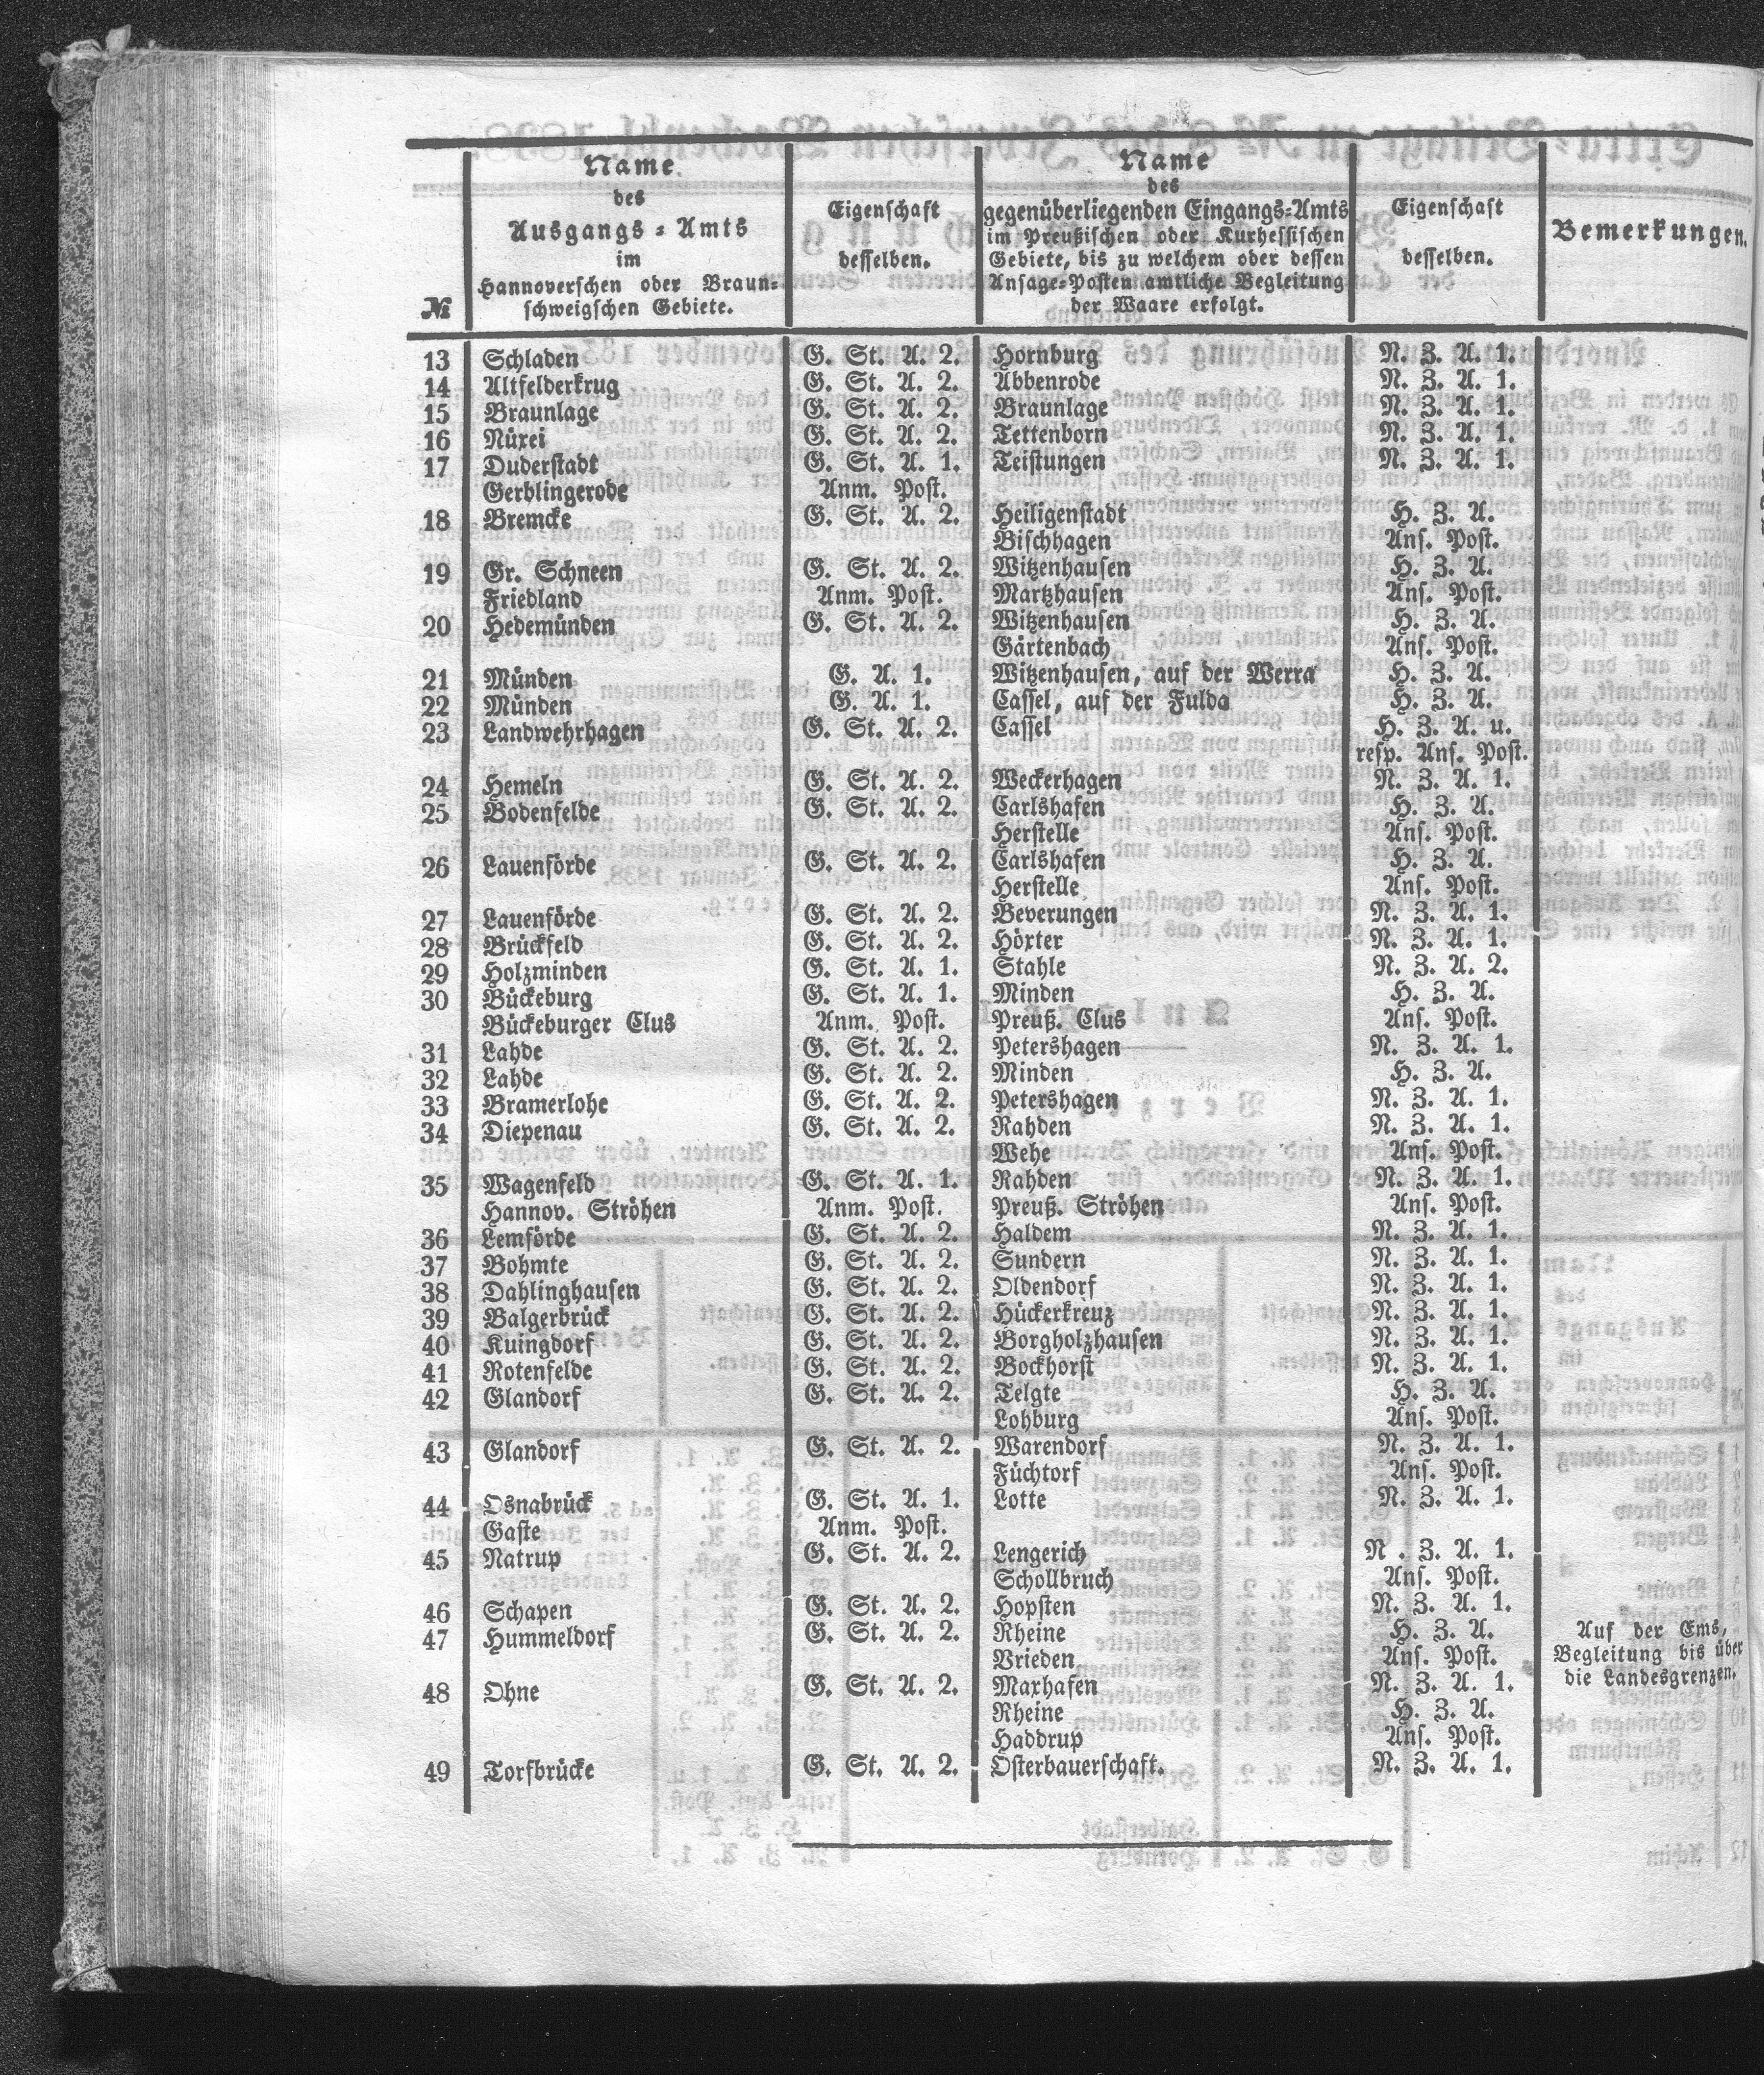 №
Name
des
Ausgangs-Amts
im
Hannoverschen oder Braun-
schweigschen Gebiete.
Eigenschaft
desselben.
Name
des
gegenüberliegenden Eingangs-Amts
im Preußischen oder Kurhessischen
Gebiete, bis zu welchem oder dessen
Ansage-Posten amtliche Begleitung
der Waare erfolgt.
Eigenschaft
desselben.
Bemerkungen.
13 Schladen G. St. A. 2. Hornburg N. Z. A. 1.
14 Altfelderkrug G. St. A. 2. Abbenrode N. Z. A. 1.
15 Braunlage G. St. A. 2. Braunlage N. Z. A. 1.
16 Nüxei G. St. A. 2. Tettenborn N. Z. A. 1.
17 Duderstadt G. St. A. 1. Teistungen N. Z. A. 1.
Gerblingerode Anm. Post.
18 Bremcke G. St. A. 2. Heiligenstadt H. Z. A.
Bischhagen Ans. Post.
19 Gr. Schneen G. St. A. 2. Witzenhausen H. Z. A.
Friedland Anm. Post. Martzhausen Ans. Post.
20 Hedemünden G. St. A. 2. Witzenhausen H. Z. A.
Gärtenbach Ans. Post.
21 Münden G. A. 1. Witzenhausen, auf der Werra H. Z. A.
22 Münden G. A. 1. Cassel, auf der Fulda H. Z. A.
23 Landwehrhagen G. St. A. 2. Cassel H. Z. A. u.
resp. Ans. Post.
24 Hemeln G. St. A. 2. Weckerhagen N. Z. A. 1.
25 Bodenfelde G. St. A. 2. Carlshafen H. Z. A.
Herstelle Ans. Post.
26 Lauenförde G. St. A. 2. Carlshafen H. Z. A.
Herstelle Ans. Post.
27 Lauenförde G. St. A. 2. Beverungen N. Z. A. 1.
28 Brückfeld G. St. A. 2. Höxter N. Z. A. 1.
29 Holzminden G. St. A. 1. Stahle N. Z. A. 2.
30 Bückeburg G. St. A. 1. Minden H. Z. A.
Bückeburger Clus Anm. Post. Preuß. Clus Ans. Post.
31 Lahde G. St. A. 2. Petershagen N. Z. A. 1.
32 Lahde G. St. A. 2. Minden H. Z. A.
33 Bramerlohe G. St. A. 2. Petershagen N. Z. A. 1.
34 Diepenau G. St. A. 2. Rahden N. Z. A. 1.
Wehe Ans. Post.
35 Wagenfeld G. St. A. 1. Rahden N. Z. A. 1.
Hannov. Ströhen Anm. Post. Preuß. Ströhen Ans. Post.
36 Lemförde G. St. A. 2. Haldem N. Z. A. 1.
37 Bohmte G. St. A. 2. Sundern N. Z. A. 1.
38 Dahlinghausen G. St. A. 2. Oldendorf N. Z. A. 1.
39 Balgerbrück G. St. A. 2. Hückerkreuz N. Z. A. 1.
40 Kuingdorf G. St. A. 2. Borgholzhausen N. Z. A. 1.
41 Rotenfelde G. St. A. 2. Bockhorst N. Z. A. 1.
42 Glandorf G. St. A. 2. Telgte H. Z. A.
Lohburg Ans. Post.
43 Glandorf G. St. A. 2. Warendorf N. Z. A. 1.
Füchtorf Ans. Post.
44 Osnabrück G. St. A. 1. Lotte N. Z. A. 1.
Gaste Anm. Post.
45 Natrup G. St. A. 2. Lengerich N. Z. A. 1.
Schollbruch Ans. Post.
46 Schapen G. St. A. 2. Hopsten N. Z. A. 1.
47 Hummeldorf G. St. A. 2. Rheine H. Z. A. Auf der Ems,
Vrieden Ans. Post. Begleitung bis über
die Landesgrenzen.
48 Ohne G. St. A. 2. Maxhafen N. Z. A. 1.
Rheine H. Z. A.
Haddrup Ans. Post.
49 Torfbrücke G. St. A. 2. Osterbauerschaft. N. Z. A. 1.